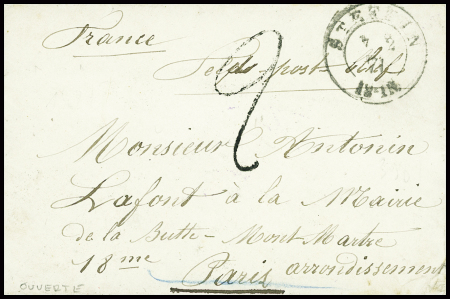 France
STETTIN
Feldpost brief
2
Monsieur Antonin
Lafont à la Mairie
de la Butte-Mont Martre
18me arrondissement
Paris
OUVERTE